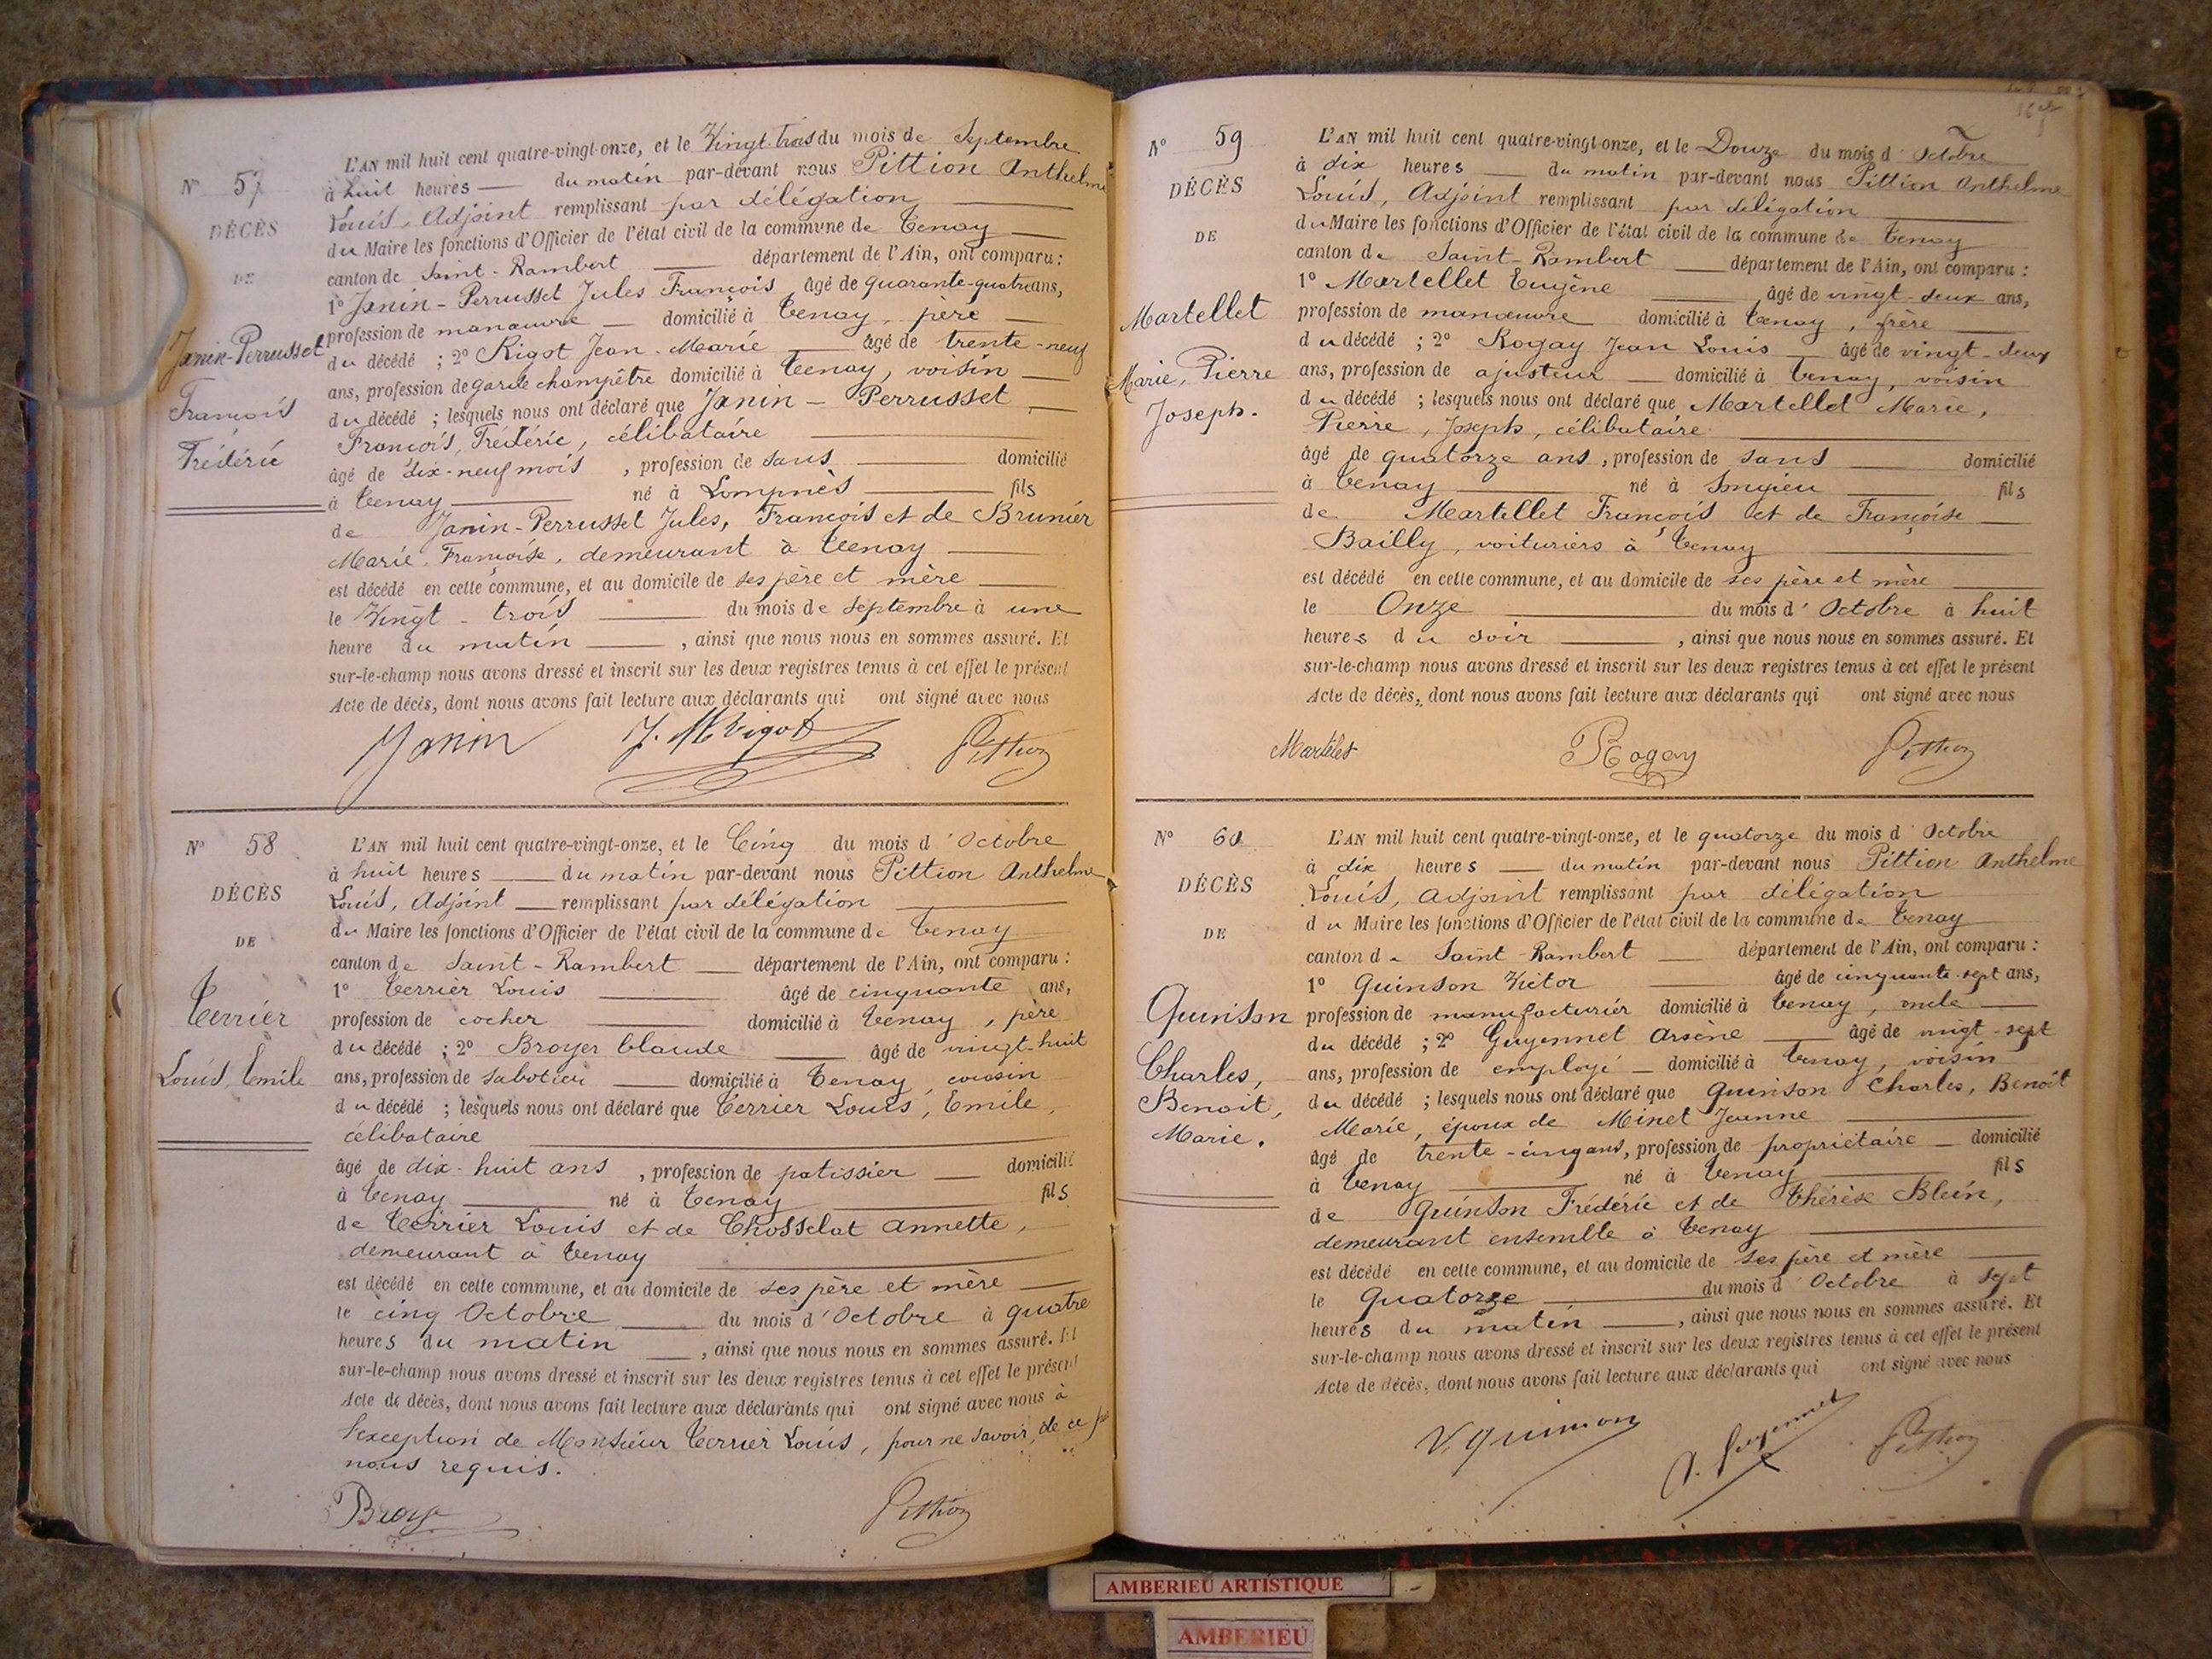 N° 57
DÉCÈS
DE
Janin-Perrusset
François
Frédéric
L'AN mil huit cent quatre-vingt-onze, et le Vingt-trois du mois de Septembre
à huit heures — du matin par-devant nous Pittion Anthelme
Louis, Adjoint remplissant par délégation
du Maire les fonctions d'Officier de l'état civil de la commune de Tenay
canton de Saint-Rambert — département de l'Ain, ont comparu :
1° Janin-Perrusset Jules François, âgé de quarante-quatre ans,
profession de manœuvre — domicilié à Tenay, père —
du décédé ; 2° Rigot Jean-Marie — âgé de trente-neuf
ans, profession de garde champêtre domicilié à Tenay, voisin —
du décédé ; lesquels nous ont déclaré que Janin - Perrusset —
François, Frédéric, célibataire
âgé de dix-neuf mois, profession de sans — domicilié
à Tenay — né à Lompnès — fils
de Janin-Perrusset Jules, François et de Brunier
Marie, Françoise, demeurant à Tenay —
est décédé en cette commune, et au domicile de ses père et mère —
le Vingt-trois — du mois de Septembre à une
heure du matin —, ainsi que nous nous en sommes assuré. Et
sur-le-champ nous avons dressé et inscrit sur les deux registres tenus à cet effet le présent
Acte de décès, dont nous avons fait lecture aux déclarants qui ont signé avec nous
Janin J. M Rigot Pittion
N° 58
DÉCÈS
DE
Terrier
Louis, Emile
L'AN mil huit cent quatre-vingt-onze, et le Cinq du mois d'Octobre
à huit heures — du matin par-devant nous Pittion Anthelme
Louis, Adjoint — remplissant par délégation
du Maire les fonctions d'Officier de l'état civil de la commune de Tenay
canton de Saint-Rambert — département de l'Ain, ont comparu :
1° Terrier Louis — âgé de cinquante ans,
profession de cocher — domicilié à Tenay, père
du décédé ; 2° Broyer Claude — âgé de vingt-huit
ans, profession de sabotier — domicilié à Tenay, cousin
du décédé ; lesquels nous ont déclaré que Terrier Louis, Emile,
célibataire
âgé de dix-huit ans, profession de patissier — domicilié
à Tenay — né à Tenay — fils
de Terrier Louis et de Chosselat Annette,
demeurant à Tenay
est décédé en cette commune, et au domicile de ses père et mère —
le cinq Octobre — du mois d'Octobre à quatre
heures du matin —, ainsi que nous nous en sommes assuré. Et
sur-le-champ nous avons dressé et inscrit sur les deux registres tenus à cet effet le présent
Acte de décès, dont nous avons fait lecture aux déclarants qui ont signé avec nous à
l'exception de Monsieur Terrier Louis, pour ne savoir, de ce par
nous requis.
Broyer Pittion
N° 59
DÉCÈS
DE
Martellet
Marie, Pierre
Joseph.
L'AN mil huit cent quatre-vingt-onze, et le Douze du mois d'Octobre
à dix heures — du matin par-devant nous Pittion Anthelme
Louis, Adjoint remplissant par délégation
du Maire les fonctions d'Officier de l'état civil de la commune de Tenay
canton de Saint-Rambert — département de l'Ain, ont comparu :
1° Martellet Eugène — âgé de vingt-deux ans,
profession de manœuvre domicilié à Tenay, frère —
du décédé ; 2° Rogay Jean Louis — âgé de vingt-deux
ans, profession de ajusteur — domicilié à Tenay, voisin
du décédé ; lesquels nous ont déclaré que Martellet Marie,
Pierre, Joseph, célibataire
âgé de quatorze ans, profession de sans — domicilié
à Tenay — né à Songieu — fils
de Martellet François et de Françoise —
Bailly, voituriers à Tenay
est décédé en cette commune, et au domicile de ses père et mère —
le Onze — du mois d'Octobre à huit
heures du soir —, ainsi que nous nous en sommes assuré. Et
sur-le-champ nous avons dressé et inscrit sur les deux registres tenus à cet effet le présent
Acte de décès, dont nous avons fait lecture aux déclarants qui ont signé avec nous
Martelet Rogay Pittion
N° 60
DÉCÈS
DE
Quinson
Charles,
Benoit,
Marie.
L'AN mil huit cent quatre-vingt-onze, et le quatorze du mois d'Octobre
à dix heures — du matin par-devant nous Pittion Anthelme
Louis, adjoint remplissant par délégation
du Maire les fonctions d'Officier de l'état civil de la commune de Tenay
canton de Saint-Rambert — département de l'Ain, ont comparu :
1° Quinson Victor — âgé de cinquante-sept ans,
profession de manufacturier domicilié à Tenay, oncle —
du décédé ; 2° Guyennet Arsène — âgé de vingt-sept
ans, profession de employé — domicilié à Tenay, voisin
du décédé ; lesquels nous ont déclaré que Quinson Charles, Benoît
Marie, époux de Minet Jeanne
âgé de trente-cinq ans, profession de propriétaire — domicilié
à Tenay — né à Tenay — fils
de Quinson Frédéric et de Thérèse Blein,
demeurant ensemble à Tenay
est décédé en cette commune, et au domicile de ses père et mère —
le Quatorze — du mois d'Octobre à sept
heures du matin —, ainsi que nous nous en sommes assuré. Et
sur-le-champ nous avons dressé et inscrit sur les deux registres tenus à cet effet le présent
Acte de décès, dont nous avons fait lecture aux déclarants qui ont signé avec nous
V. Quinson A. Guyennet Pittion
AMBERIEU ARTISTIQUE
AMBERIEU